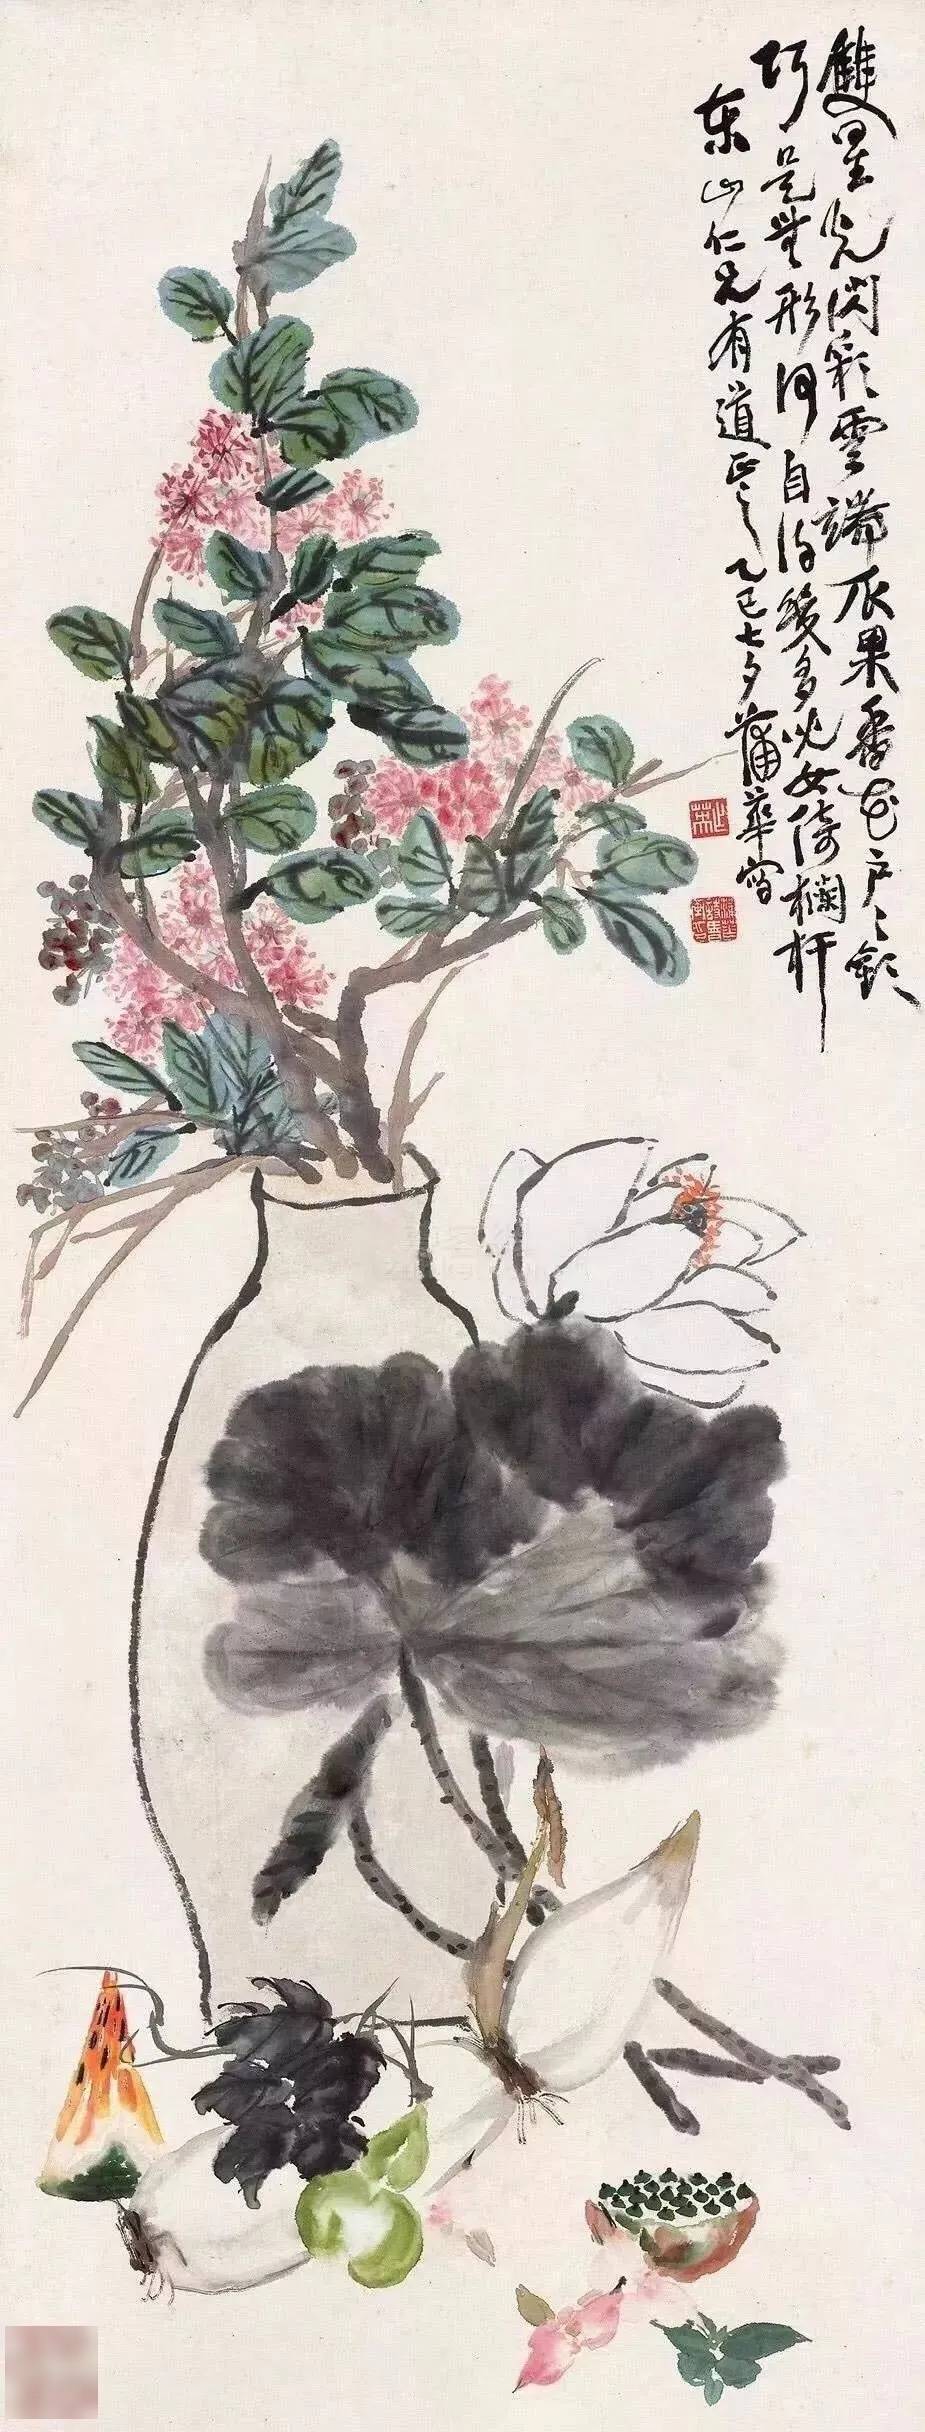 雙星光閃彩雲端瓜果香花戶戶歡
巧是無形何自得幾多兒女倚欄杆
東山仁兄有道正之乙巳七夕蒲華寫